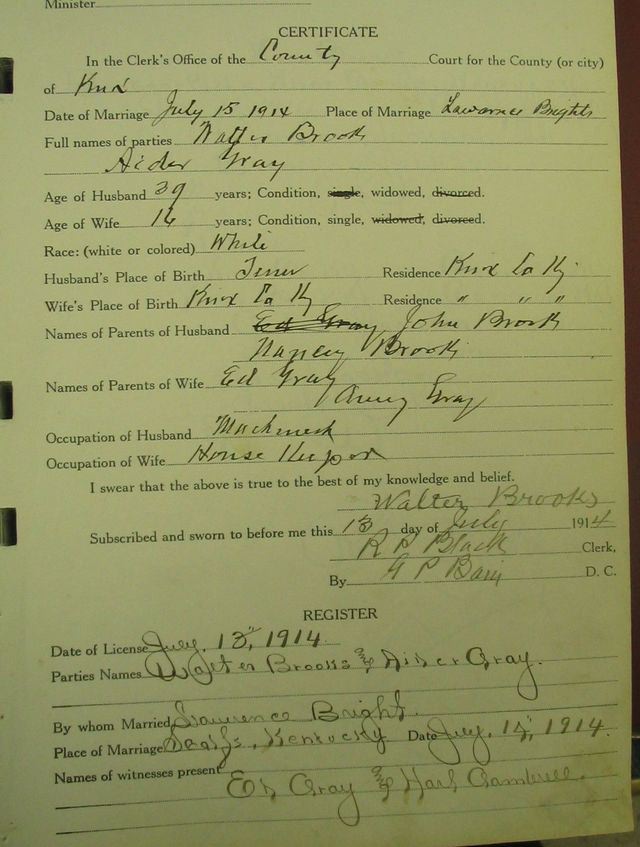 Minister
CERTIFICATE
In the Clerk's Office of the County Court for the County (or city)
of Knox
Date of Marriage July 15 1914 Place of Marriage Lawarnce Brights
Full names of parties Walter Brook
Aider Gray
Age of Husband 39 years; Condition, single, widowed, divorced.
Age of Wife 16 years; Condition, single, widowed, divorced.
Race: (white or colored) White
Husband's Place of Birth Tenn Residence Knox Co Ky
Wife's Place of Birth Knox Co Ky Residence " " "
Names of Parents of Husband Ed Gray John Brook
Nancy Brook
Names of Parents of Wife Ed Gray
Gray
Occupation of Husband
Occupation of Wife House Keeper
I swear that the above is true to the best of my knowledge and belief.
Walter Brooks
Subscribed and sworn to before me this 13 day of July 1914
Black Clerk,
By G P Bain D. C.
REGISTER
Date of License July, 13", 1914.
Parties Names Walter Brooks & Aider Gray.
By whom Married Lawrence Bright.
Place of Marriage Kentucky Date July, 1914.
Names of witnesses present
Ed Gray & Gambrell.